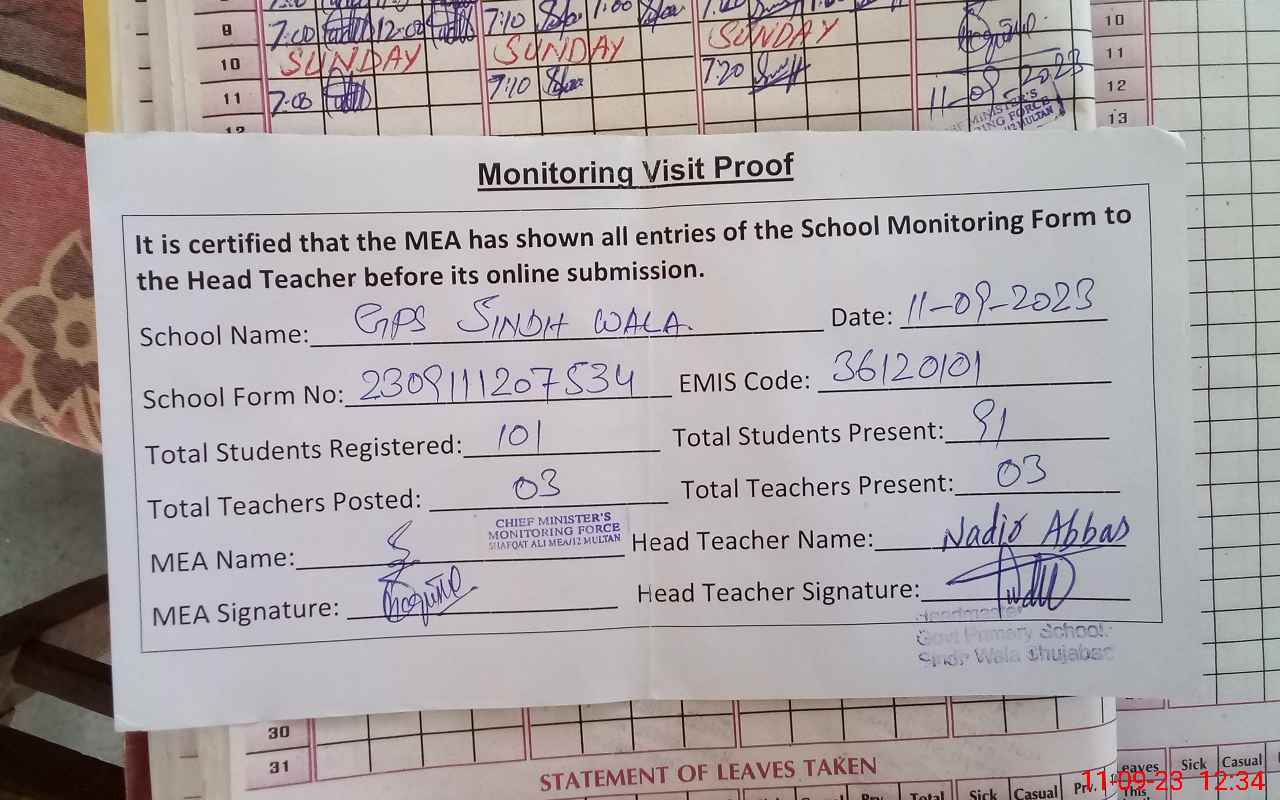 9 7:00 12:00 7:10 1:00
10 SUNDAY SUNDAY SUNDAY
11 7:08 7:10 7:20 11-09-2023
12
10
11
12
13
CHIEF MINISTER'S
MONITORING FORCE
MULTAN
Monitoring Visit Proof
It is certified that the MEA has shown all entries of the School Monitoring Form to
the Head Teacher before its online submission.
School Name: GPS SINDH WALA. Date: 11-09-2023
School Form No: 2309111207534 EMIS Code: 36120101
Total Students Registered: 101 Total Students Present: 91
Total Teachers Posted: 03 Total Teachers Present: 03
CHIEF MINISTER'S
MONITORING FORCE
SHAFQAT ALI MEA/12 MULTAN
MEA Name: Head Teacher Name: Nadir Abbas
MEA Signature: Head Teacher Signature:
Headmaster
Govt Primary School
Sindh Wala Shujabad
30
31
STATEMENT OF LEAVES TAKEN
Total Sick Casual Prv. Leaves Sick Casual
This
11-09-23 12:34